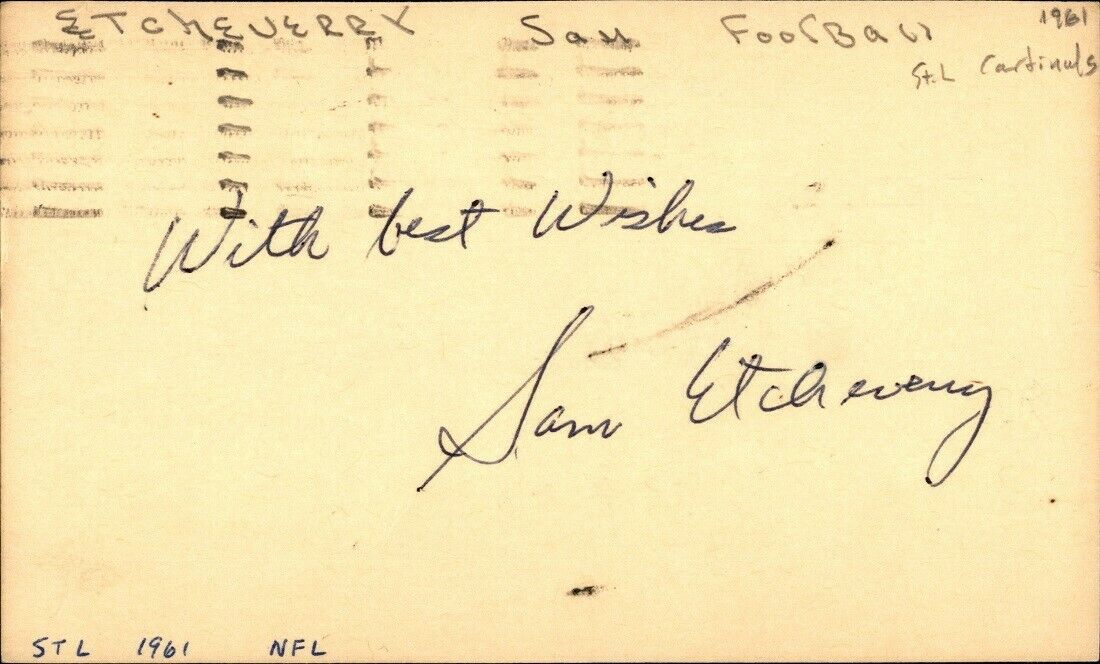 ETCHEVERRY Sam FootBall 1961
St.L Cardinals
With best Wishes
Sam Etcheverry
STL 1961 NFL